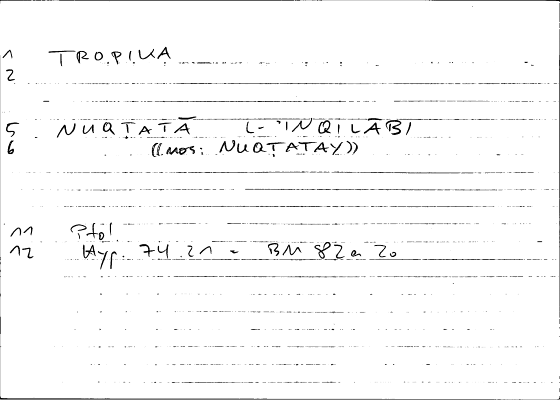 1 TROPIKA
2
5 NUQṬATĀ L-'INQILĀBI
6 ((mos: NUQṬATAY))
11 Ptol
12 Hyp. 74.21 = BM 82a 20